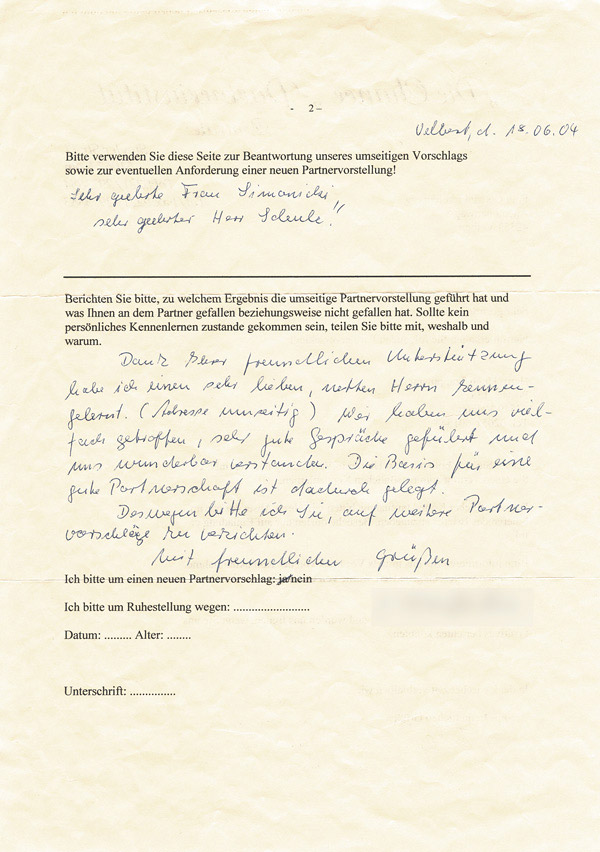 - 2 –
Velbert, d. 18.06.04
Bitte verwenden Sie diese Seite zur Beantwortung unseres umseitigen Vorschlags
sowie zur eventuellen Anforderung einer neuen Partnervorstellung!
Sehr geehrte Frau Simonicki
sehr geehrter Herr Schenk!!
Berichten Sie bitte, zu welchem Ergebnis die umseitige Partnervorstellung geführt hat und
was Ihnen an dem Partner gefallen beziehungsweise nicht gefallen hat. Sollte kein
persönliches Kennenlernen zustande gekommen sein, teilen Sie bitte mit, weshalb und
warum.
Dank Ihrer freundlichen Unterstützung
habe ich einen sehr lieben, netten Herrn kennen-
gelernt. (Adresse umseitig) Wir haben uns viel-
fach getroffen, sehr gute Gespräche geführt und
uns wunderbar verstanden. Die Basis für eine
gute Partnerschaft ist dadurch gelegt.
Deswegen bitte ich Sie, auf weitere Partner-
vorschläge zu verzichten.
Mit freundlichen Grüßen
Ich bitte um einen neuen Partnervorschlag: ja/nein
Ich bitte um Ruhestellung wegen: .........................
Datum: ......... Alter: ........
Unterschrift: ...............